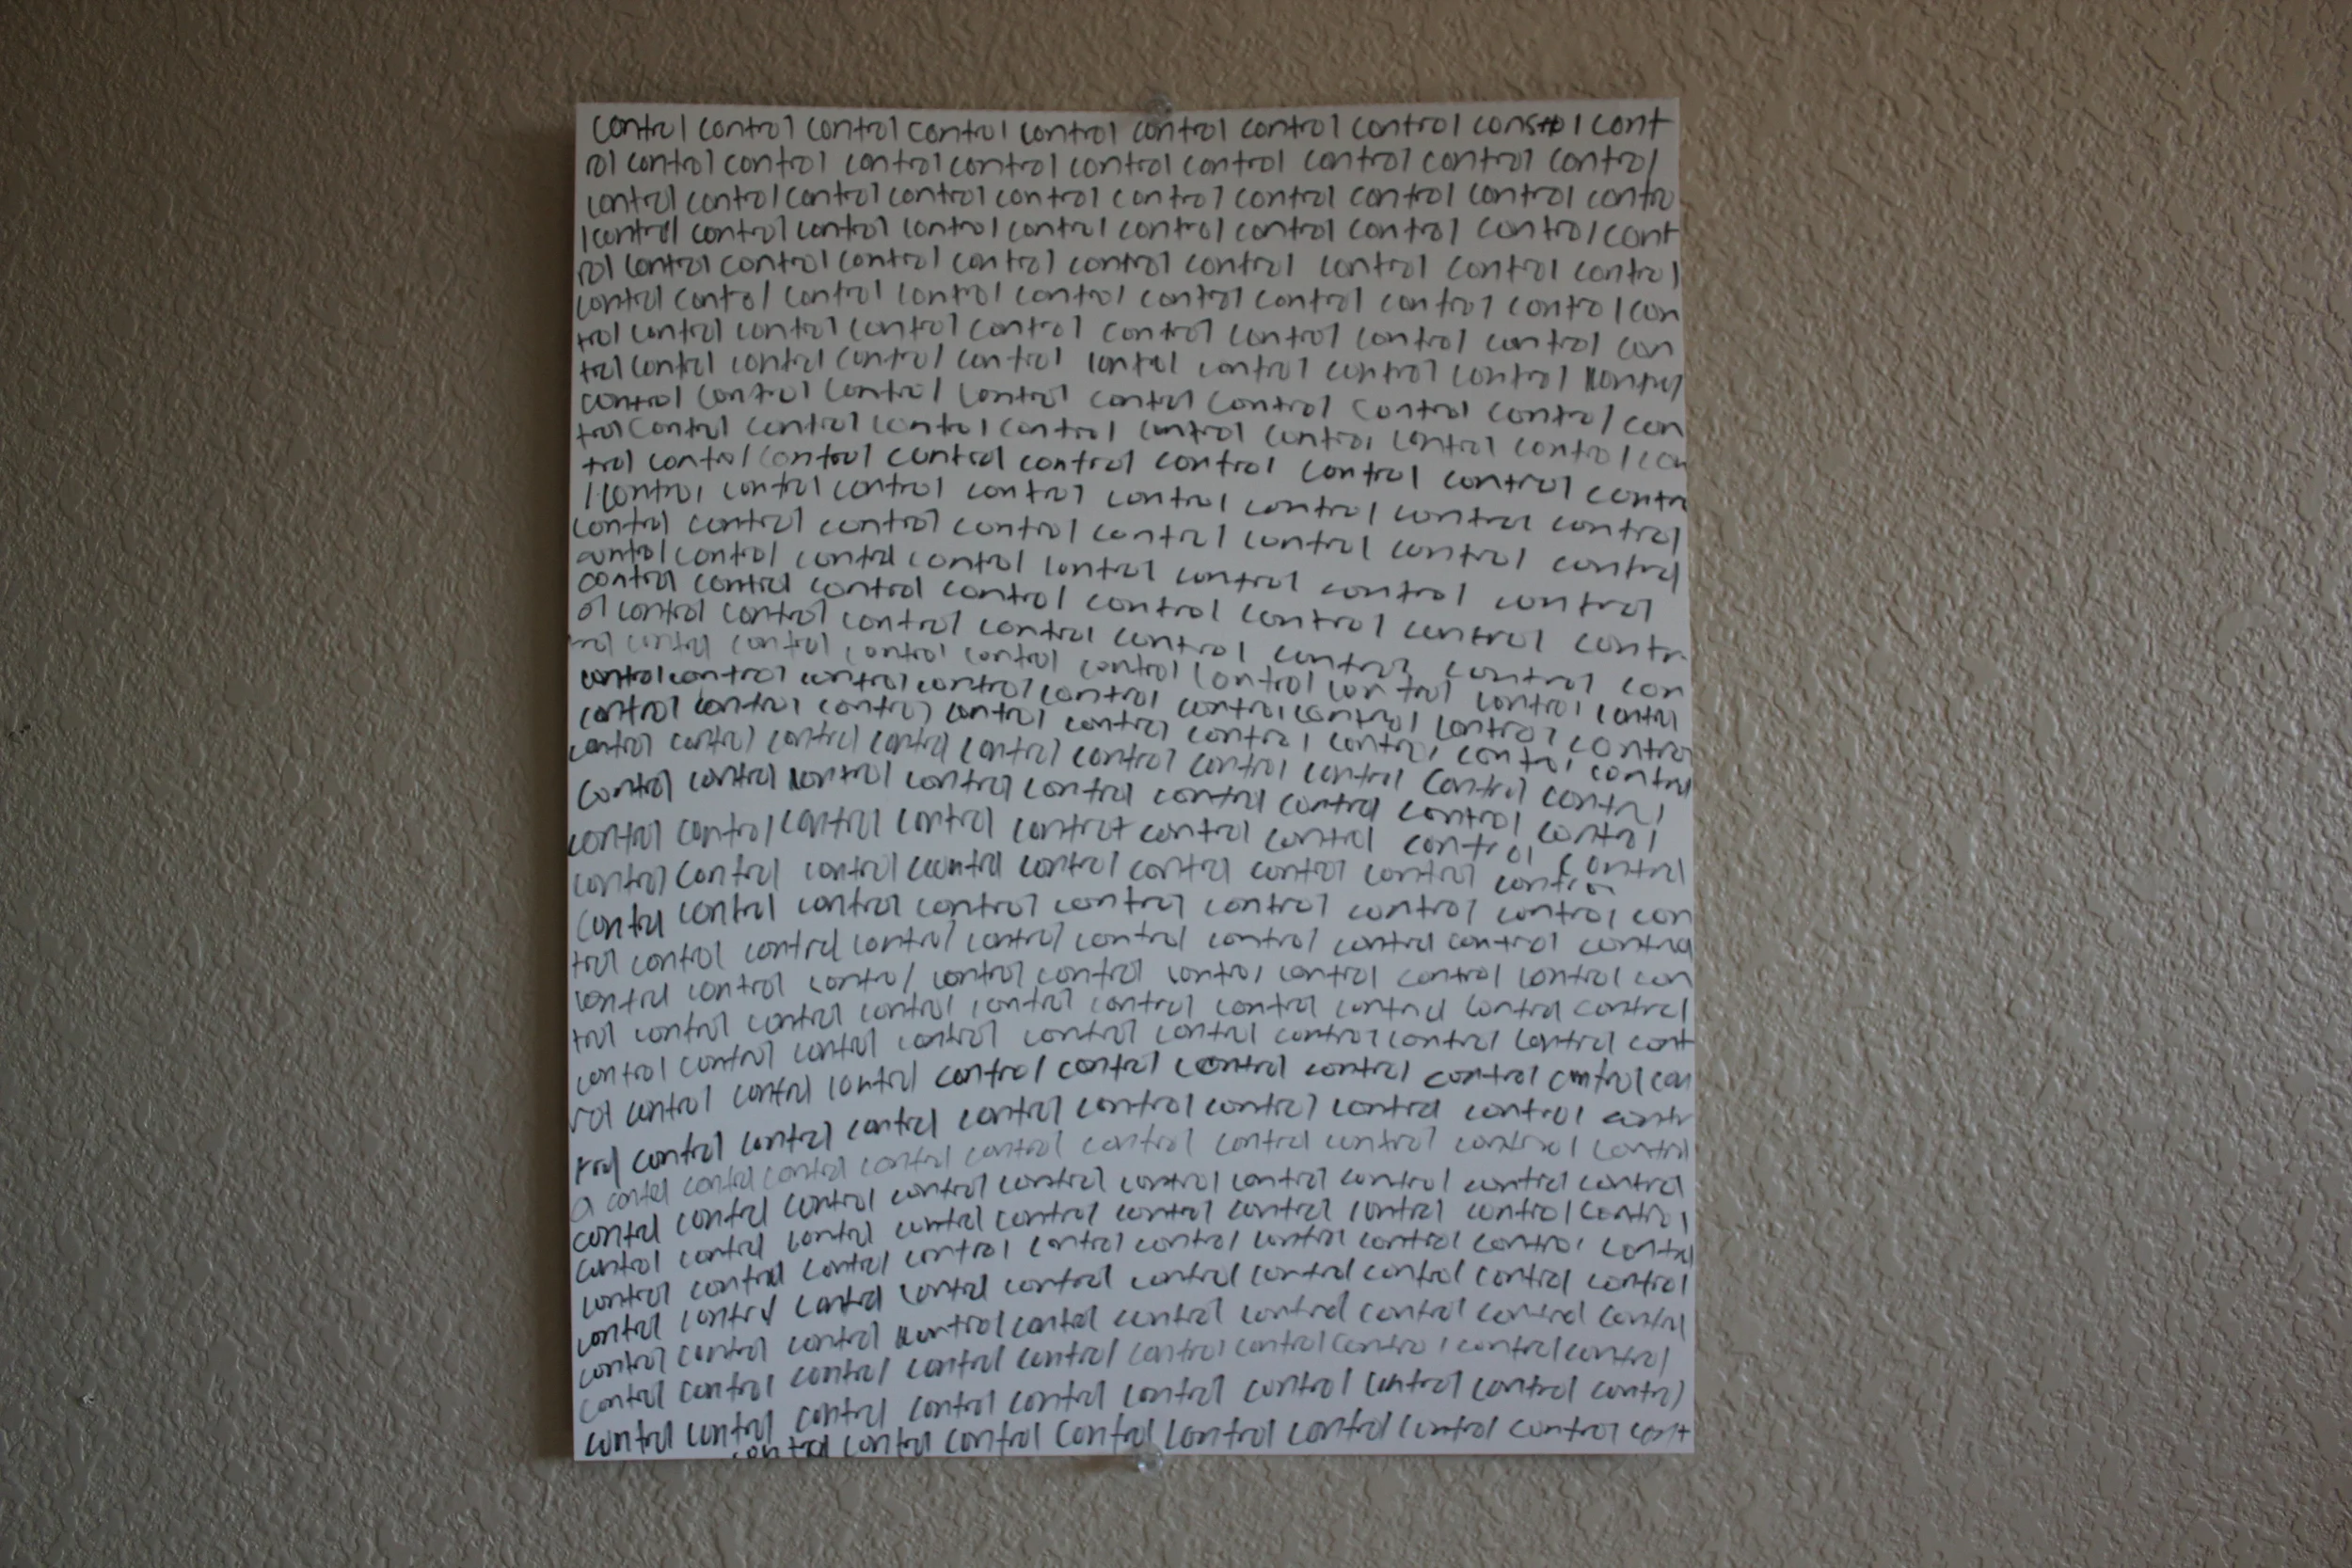 control control control control control control control control control cont
rol control control control control control control control control control
control control control control control control control control control contro
l control control control control control control control control control cont
rol control control control control control control control control control
control control control control control control control control control con
trol control control control control control control control control con
trol control control control control control control control control control
control control control control control control control control con
trol control control control control control control control control con
trol control control control control control control control contro
l control control control control control control control control
control control control control control control control control
control control control control control control control control
control control control control control control control control
ol control control control control control control control contr
rol control control control control control control control con
control control control control control control control control control
control control control control control control control control control
control control control control control control control control control control
control control control control control control control control control
control control control control control control control control control
control control control control control control control control control
control control control control control control control control con
trol control control control control control control control control control
control control control control control control control control control con
trol control control control control control control control control control
control control control control control control control control control cont
rol control control control control control control control control control con
trol control control control control control control control control contr
ol control control control control control control control control control
control control control control control control control control control control
control control control control control control control control control control
control control control control control control control control control control
control control control control control control control control control control
control control control control control control control control control control
control control control control control control control control control control
control control control control control control control control control control
control control
control control control control control control control control cont